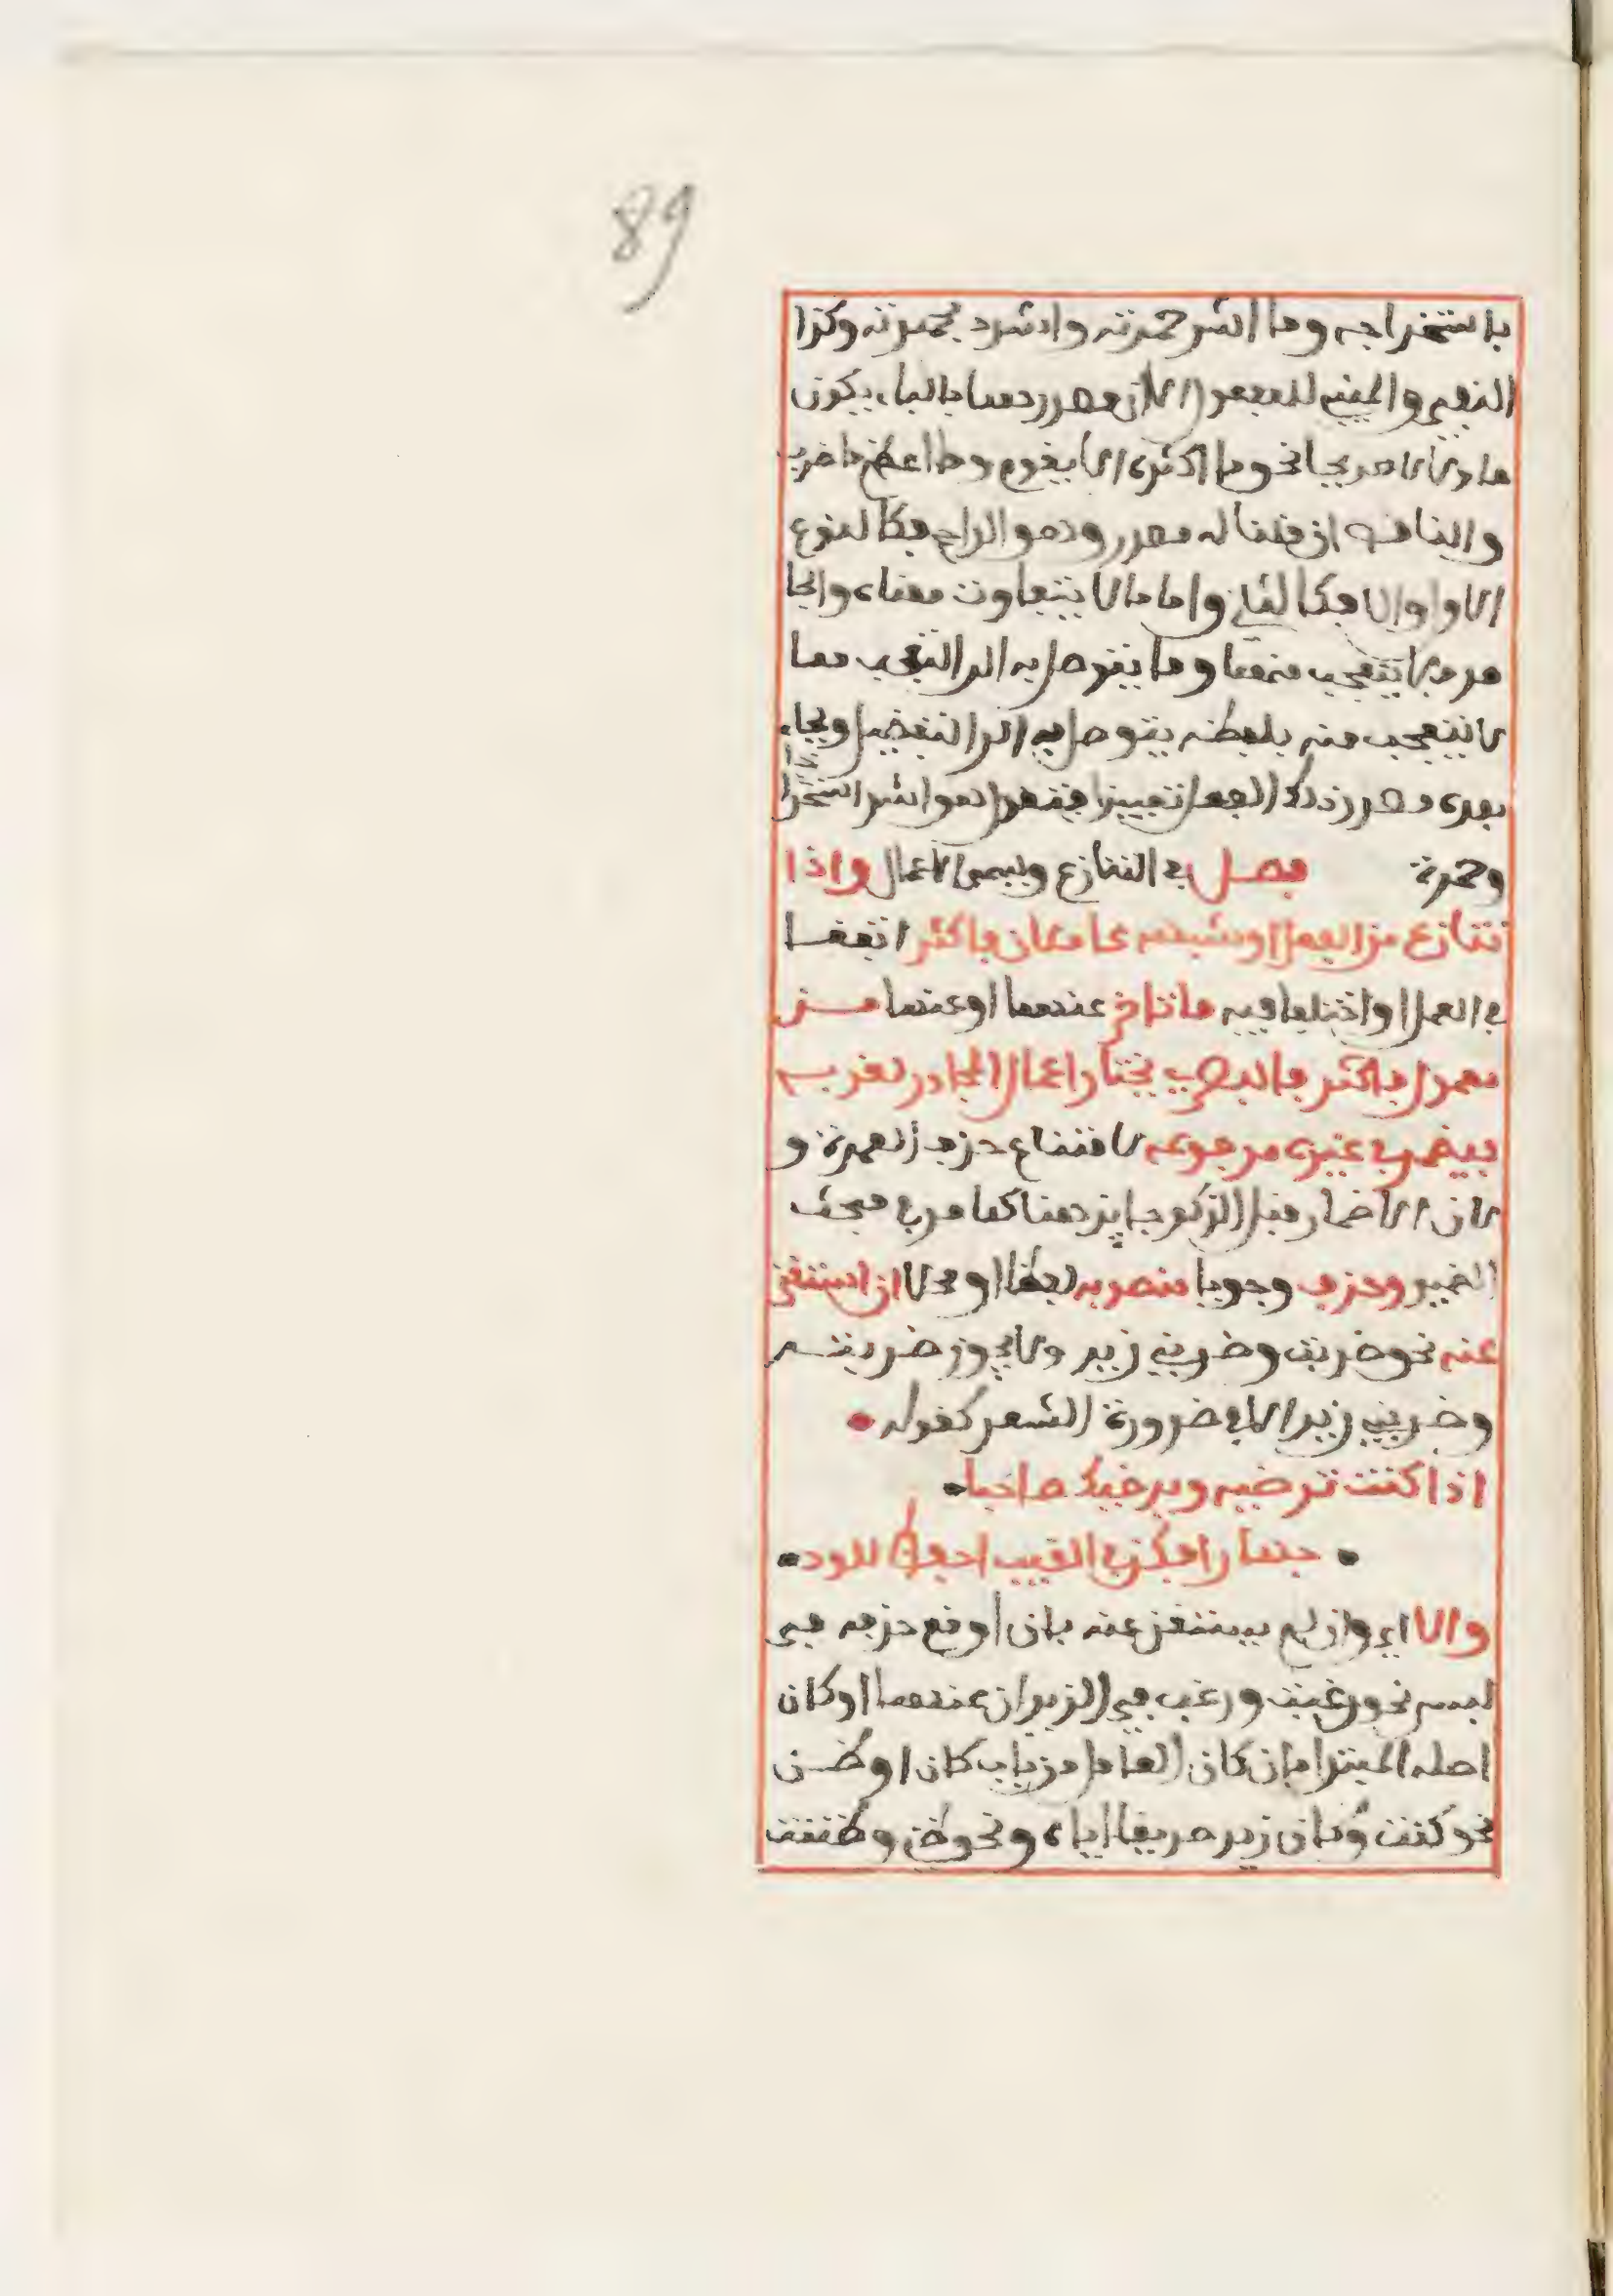 89
باستخراجه وما اشد حمرته واشدد بحمرته وكذا
المنفي والمبني للمفعول الا ان مصدرهما بالباء يكون
ماولا لا صريحا نحو ما اكثر الا يقوم وما اعظم ما ضرب
والناقص ان قلنا له مصدر وهو الراجح فكالنوع
الاول والا فكالثاني واما ما لا يتفاوت معناه والجا
مد فلا يتعجب منهما وما يتوصل به الى التعجب مما
لا يتعجب منه بلفظه يتوصل به الى التفضيل ويجاء
بعده مصدر ذلك الفعل تمييزا فتقول هو اشد استخراجا
وحمرة فصل في التنازع ويسمى الاعمال واذا
تنازع من الفعل او شبهه عاملان فاكثر اتفقا
في العمل او اختلفا فيه ما تاخر عندهما او عندها من
معمول فاكثر فالبصري يختار اعمال المجاور لقربه
فيضمر في غيره مرفوعه لامتناع حذف العمدة و
لان الاضمار قبل الذكر جايز هنا كما مر في مبحث
الضمير وحذف وجوبا منصوبه لفظا او محلا ان استغني
عنه نحو ضربت وضربني زيد ولا يجوز ضربته
وضربني زيد الا في ضرورة الشعر كقوله
اذا كنت ترضيه ويرضيك صاحبا
جهارا فكن في الغيب احفظ للود
والا اي وان لم يستغن عنه بان اوقع حذفه في
لبس نحو رغبت ورغب في الزيدان عنهما او كان
اصله المبتدا بان كان العامل من باب كان او ظن
نحو كنت وكان زيد صديقا اياه ونحو ظني وظننت